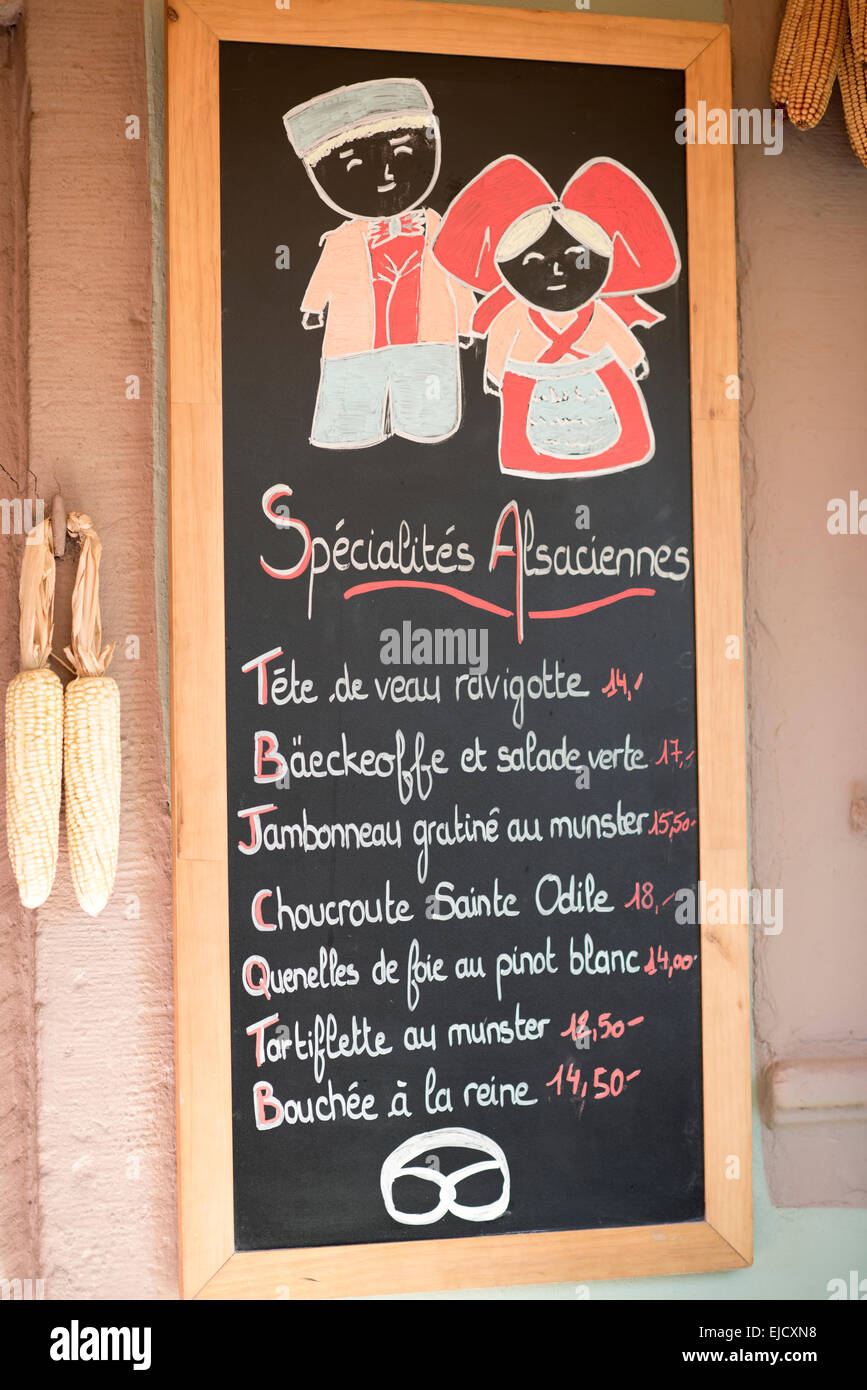 Spécialités Alsaciennes
Tête de veau ravigotte 14,-
Bäeckeoffe et salade verte 17,-
Jambonneau gratiné au munster 15,50-
Choucroute Sainte Odile 18,-
Quenelles de foie au pinot blanc 14,00-
Tartiflette au munster 12,50-
Bouchée à la reine 14,50-
alamy
Image ID: EJCXN8
www.alamy.com